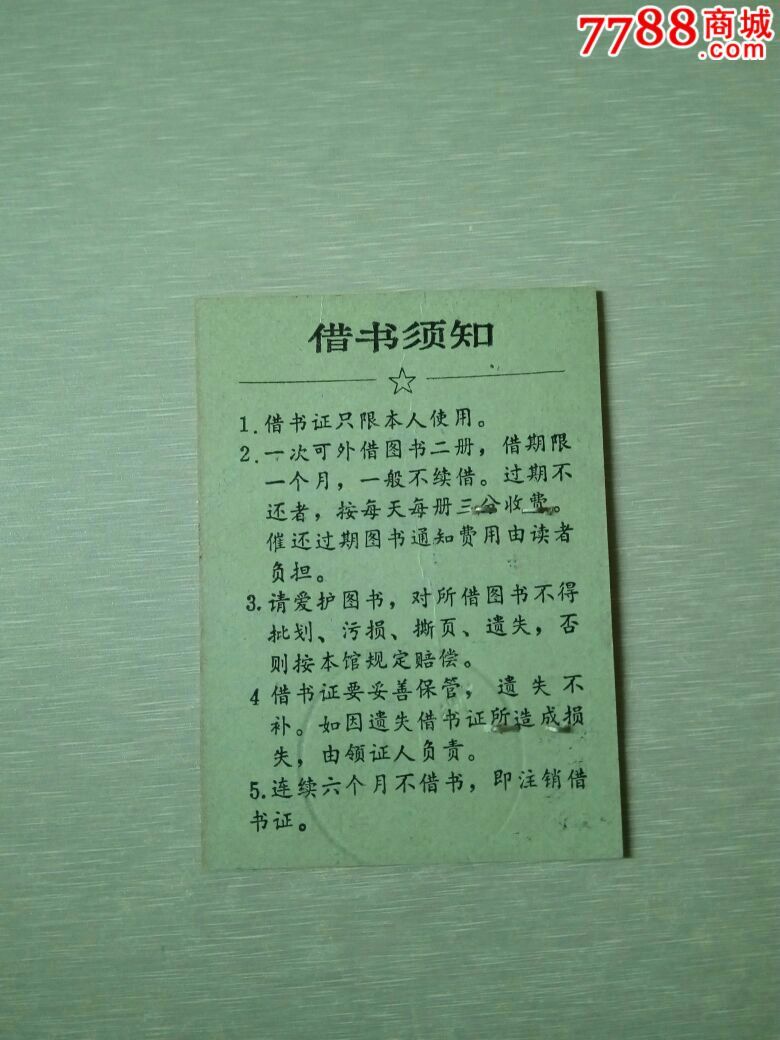 7788商城
.com
借书须知
1.借书证只限本人使用。
2.一次可外借图书二册，借期限
一个月，一般不续借。过期不
还者，按每天每册三分收费。
催还过期图书通知费用由读者
负担。
3.请爱护图书，对所借图书不得
批划、污损、撕页、遗失，否
则按本馆规定赔偿。
4 借书证要妥善保管，遗失不
补。如因遗失借书证所造成损
失，由领证人负责。
5.连续六个月不借书，即注销借
书证。